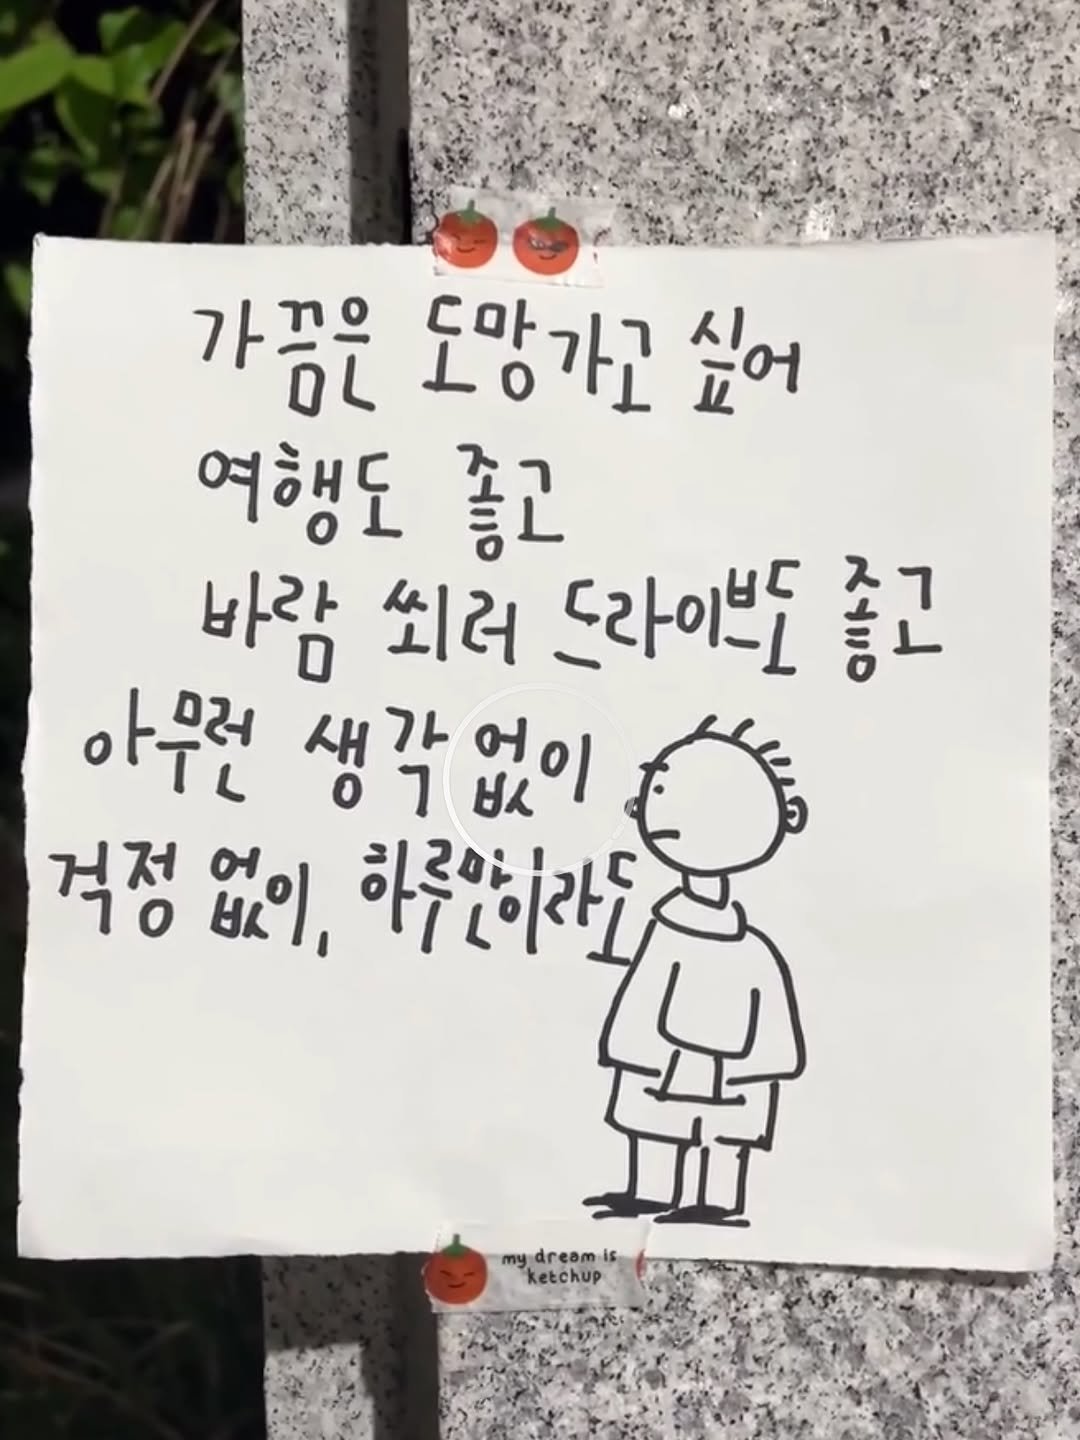 가끔은 도망가고 싶어
여행도 좋고
바람 쐬러 드라이브도 좋고
아무런 생각 없이
걱정 없이, 하루만이라도
my dream is
ketchup